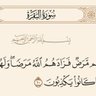 سُورَةُ البَقَرَةِ
بِسْمِ اللَّهِ الرَّحْمَٰنِ الرَّحِيمِ
مَّرَضٌ فَزَادَهُمُ ٱللَّهُ مَرَضًا وَلَهُمْ
كَانُوا۟ يَكْذِبُونَ